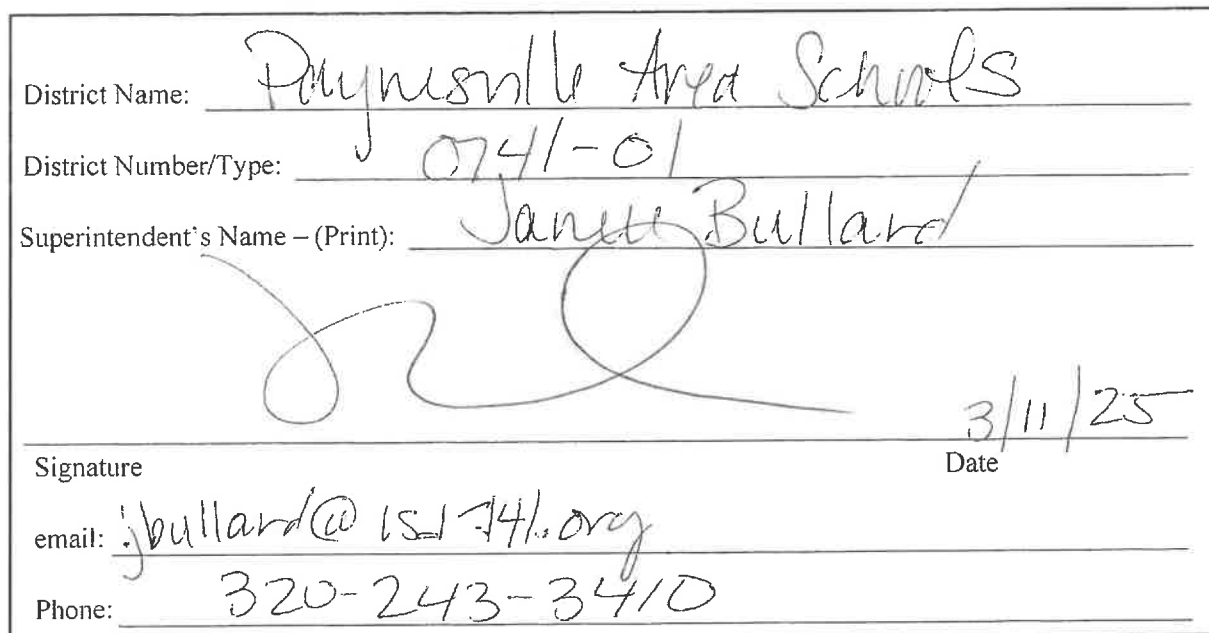 District Name: Paynesville Area Schools
District Number/Type: 0741-01
Superintendent's Name – (Print): Janell Bullard
3/11/25
Signature Date
email: jbullard@isd741.org
Phone: 320-243-3410